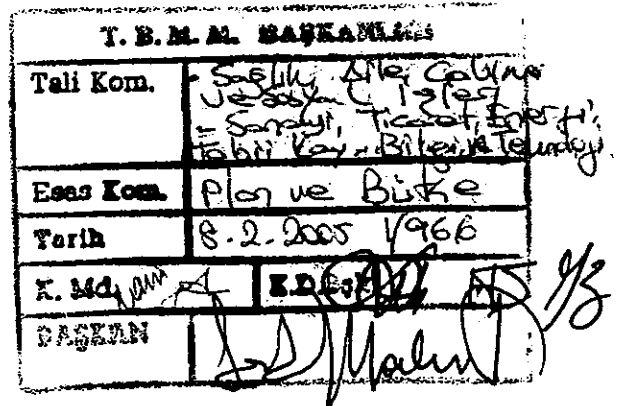 T. B. M. M. BAŞKANLIĞI
Tali Kom. - Sağlık, Aile, Çalışma
ve Sosyal İşler
- Sanayi, Ticaret, Enerji,
Tabii Kay. Bilgi ve Teknoloji
Esas Kom. Plan ve Bütçe
Tarih 8.2.2005 1/966
K. Md.
BAŞKAN